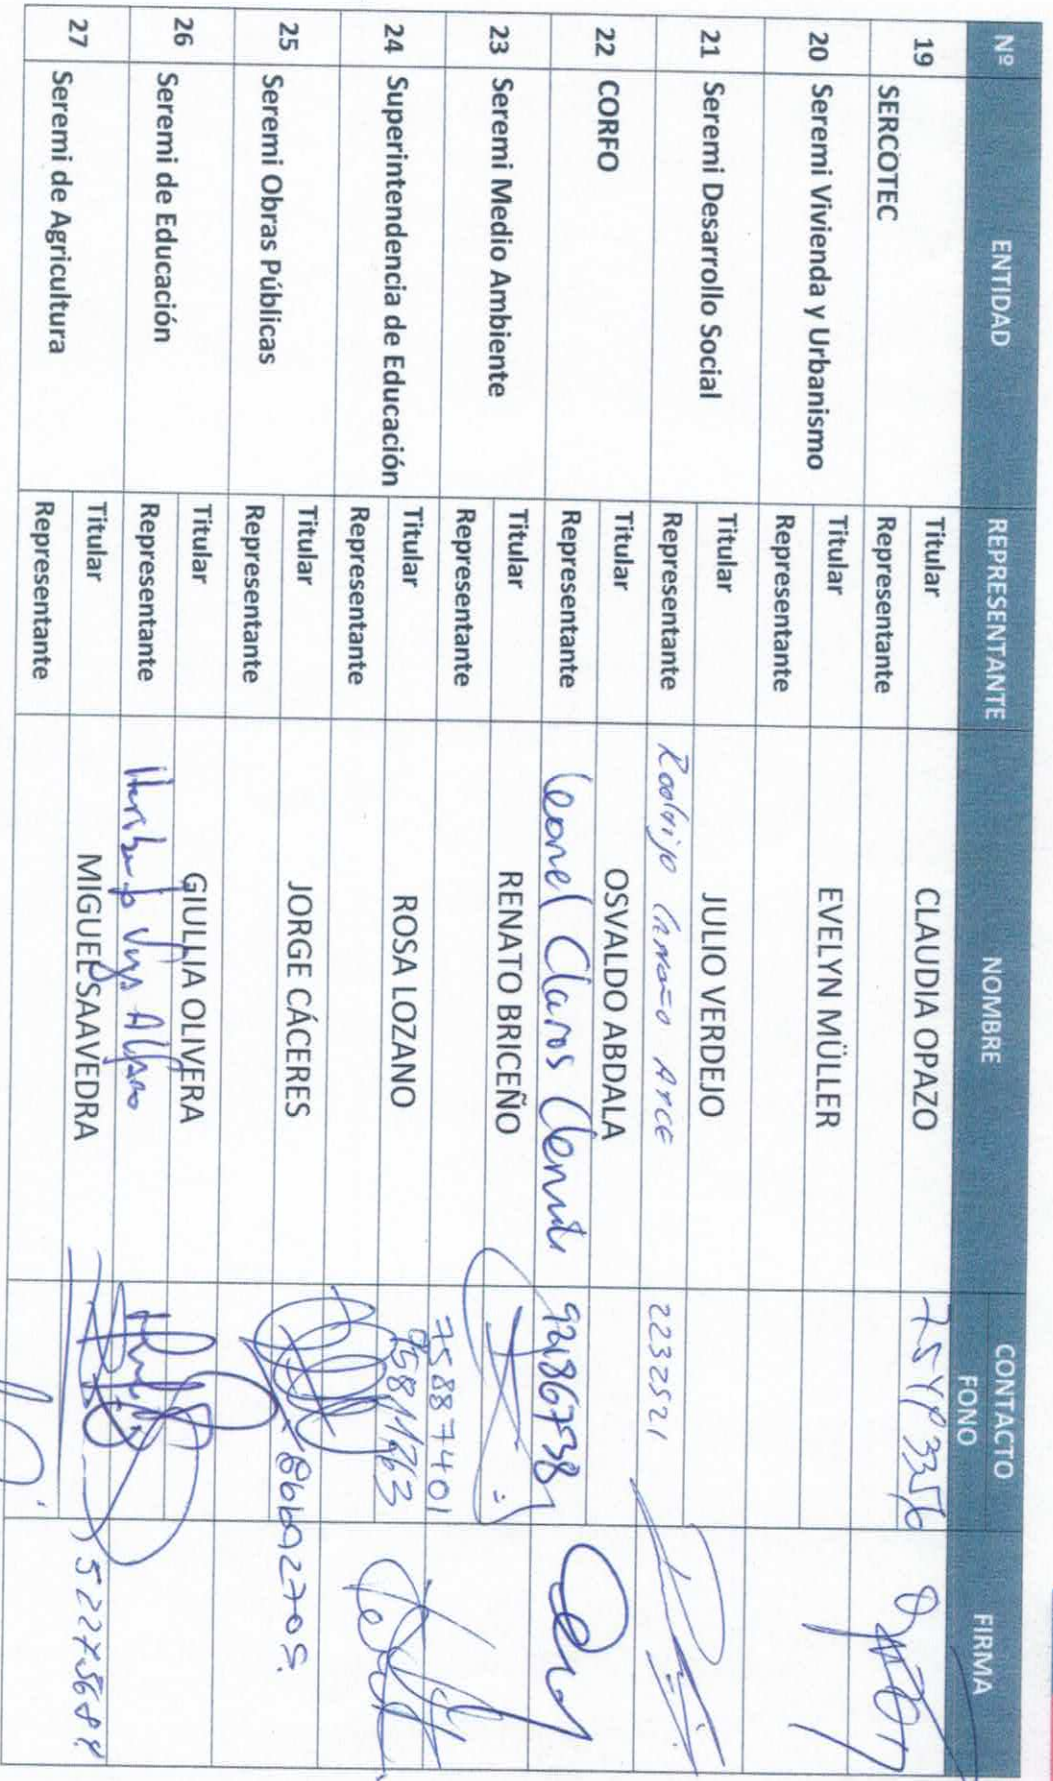 Nº ENTIDAD REPRESENTANTE NOMBRE CONTACTO FONO FIRMA
19 SERCOTEC Titular CLAUDIA OPAZO
Representante
20 Seremi Vivienda y Urbanismo Titular EVELYN MÜLLER
Representante
21 Seremi Desarrollo Social Titular JULIO VERDEJO
Representante Rodrigo Arce 2232521
22 CORFO Titular OSVALDO ABDALA
Representante Leonel Claros 92867738
23 Seremi Medio Ambiente Titular RENATO BRICEÑO
Representante 75887401
24 Superintendencia de Educación Titular ROSA LOZANO
Representante
25 Seremi Obras Públicas Titular JORGE CÁCERES
Representante
26 Seremi de Educación Titular GIULLIA OLIVERA
Representante
27 Seremi de Agricultura Titular MIGUEL SAAVEDRA
Representante